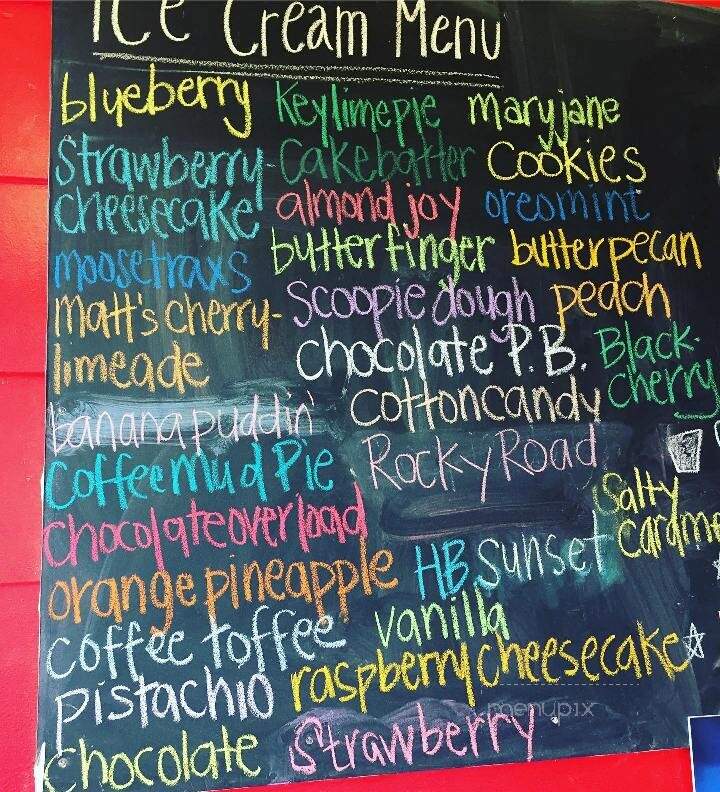 Ice Cream Menu
blueberry Keylimepie maryjane
Strawberry- Cakebatter Cookies
cheesecake almond joy oreomint
moosetraxs butterfinger butterpecan
matt's cherry- Scoopie dough peach
limeade chocolate P.B. Black-
cherry
bananapuddin' cottoncandy
Coffee Mud Pie Rocky Road
Salty
chocolateoverload caramel
orangepineapple HB Sunset
coffee toffee vanilla
Pistachio raspberrycheesecake
chocolate Strawberry
menupix